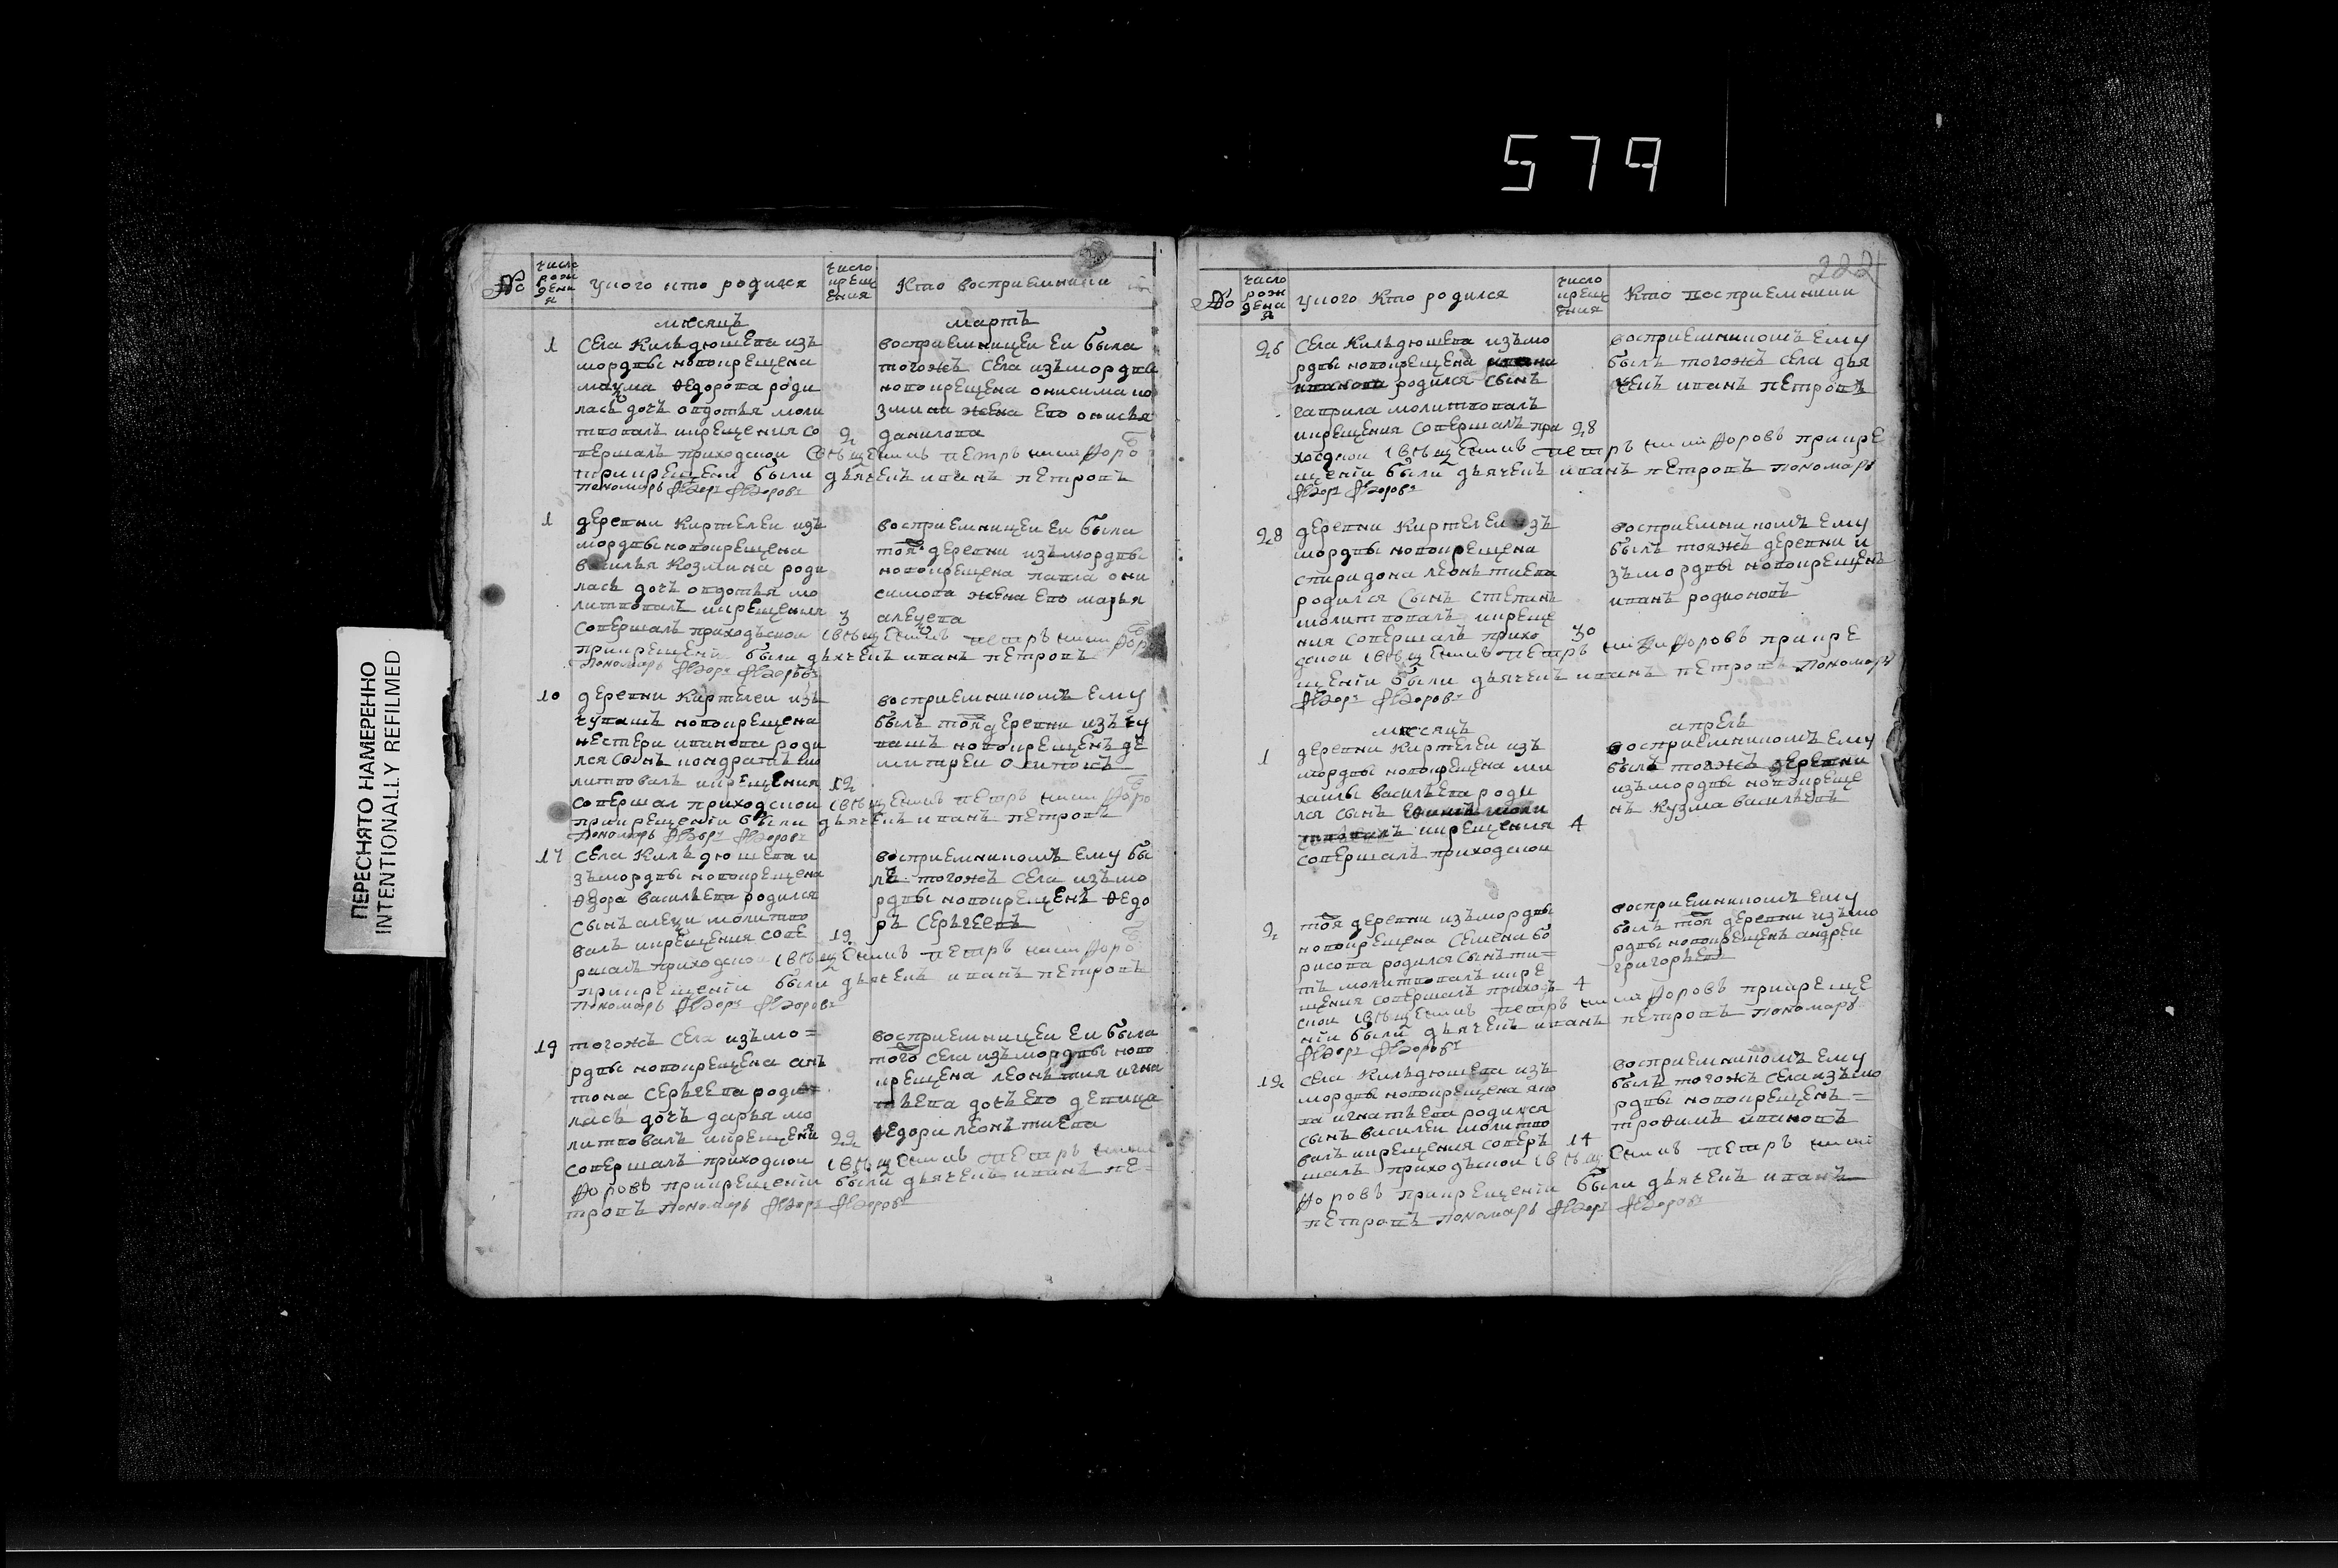 579
ПЕРЕСНЯТО НАМЕРЕННО
INTENTIONALLY REFILMED
№
число рождения
у кого кто родился
число крещения
Кто восприемники
месяцъ мартъ
1
села Кильдюшева изъ
мордвы новокрещена
наума ѳедорова роди
лась дочь овдотья моли
твовалъ и крещения со
вершалъ приходской священникъ петръ никифоровъ
при крещени были дьячекъ иванъ петровъ
пономарь Ѳедоръ Ѳедоровъ
2
восприемницеи еи была
тогожъ села изъ мордвы
новокрещена онисима ко
змина жена ево онисья
данилова
1
деревни Киртелеи изъ
мордвы новокрещена
василья козмина роди
лась дочь овдотья мо
литвовалъ и крещения
совершалъ приходской священникъ петръ никифоровъ
при крещени были дьячекъ иванъ петровъ
пономарь Ѳедоръ Ѳедоровъ
3
восприемницеи еи была
тоя деревни изъ мордвы
новокрещена павла они
симова жена ево марья
10
деревни Киртелеи изъ
чувашъ новокрещена
нестера иванова роди
лся сынъ кондратъ мо
литвовалъ и крещения
совершал приходской священникъ петръ никифоровъ
при крещении были дьячекъ иванъ петровъ
пономарь Ѳедоръ Ѳедоровъ
12
восприемникомъ ему
былъ тоя деревни изъ чу
вашъ новокрещенъ де
митреи осиповъ
17
села Кильдюшева и
зъ мордвы новокрещена
ѳедора васильева родился
сынъ алеѯи молитво
валъ и крещения сове
ршалъ приходской священникъ петръ никифоровъ
при крещении были дьячекъ иванъ петровъ
пономарь Ѳедоръ Ѳедоровъ
19
восприемникомъ ему бы
лъ тогожъ села изъ мо
рдвы новокрещенъ ѳедо
ръ сергеевъ
19
тогожъ села изъ мо=
рдвы новокрещена ан
тона сергеева роди=
лась дочь дарья мо
литвовалъ и крещения
совершалъ приходской священникъ петръ ники
форовъ при крещении были дьячекъ иванъ пе=
тровъ пономарь Ѳедоръ Ѳедоровъ
22
восприемницеи еи была
того села изъ мордвы ново
крещена леонтия игна
тьева дочь ево девица
ѳедора леонтиева
222
№
число рождения
у кого кто родился
число крещения
Кто восприемники
26
села Кильдюшева изъ мо
рдвы новокрещена
иванова родился сынъ
гаврила молитвовалъ
и крещения совершалъ при
ходской священникъ петръ никифоровъ при кре
щении были дьячекъ иванъ петровъ пономарь
Ѳедоръ Ѳедоровъ
28
восприемникомъ ему
былъ тогожъ села дья
чекъ иванъ петровъ
28
деревни Киртелеи изъ
мордвы новокрещена
спиридона леонтиева
родился сынъ степанъ
молитвовалъ и креще
ния совершалъ прихо
дской священникъ петръ никифоровъ при кре
щении были дьячекъ иванъ петровъ пономарь
Ѳедоръ Ѳедоровъ
30
восприемникомъ ему
былъ тояжъ деревни и
зъ мордвы новокрещенъ
иванъ родионовъ
месяцъ апрель
1
деревни Киртелеи изъ
мордвы новокрещена ми
хаилы васильева роди
лся сынъ
и крещения
совершалъ приходской
4
восприемникомъ ему
былъ тояжъ деревни
изъ мордвы новокреще
нъ кузма васильевъ
2
тоя деревни изъ мордвы
новокрещена семена бо
рисова родился сынъ ти=
тъ молитвовалъ и кре
щения совершалъ приход
ской священникъ петръ никифоровъ при креще
нии были дьячекъ иванъ петровъ пономарь
Ѳедоръ Ѳедоровъ
4
восприемникомъ ему
былъ тоя деревни изъ мо
рдвы новокрещенъ андреи
григорьевъ
12
села Кильдюшева изъ
мордвы новокрещена яко
ва игнатьева родился
сынъ василеи молитво
валъ и крещения совер
шалъ приходской священникъ петръ ники
форовъ при крещении были дьячекъ иванъ
петровъ пономарь Ѳедоръ Ѳедоровъ
14
восприемникомъ ему
былъ тогожъ села изъ мо
рдвы новокрещенъ=
трофимъ ивановъ